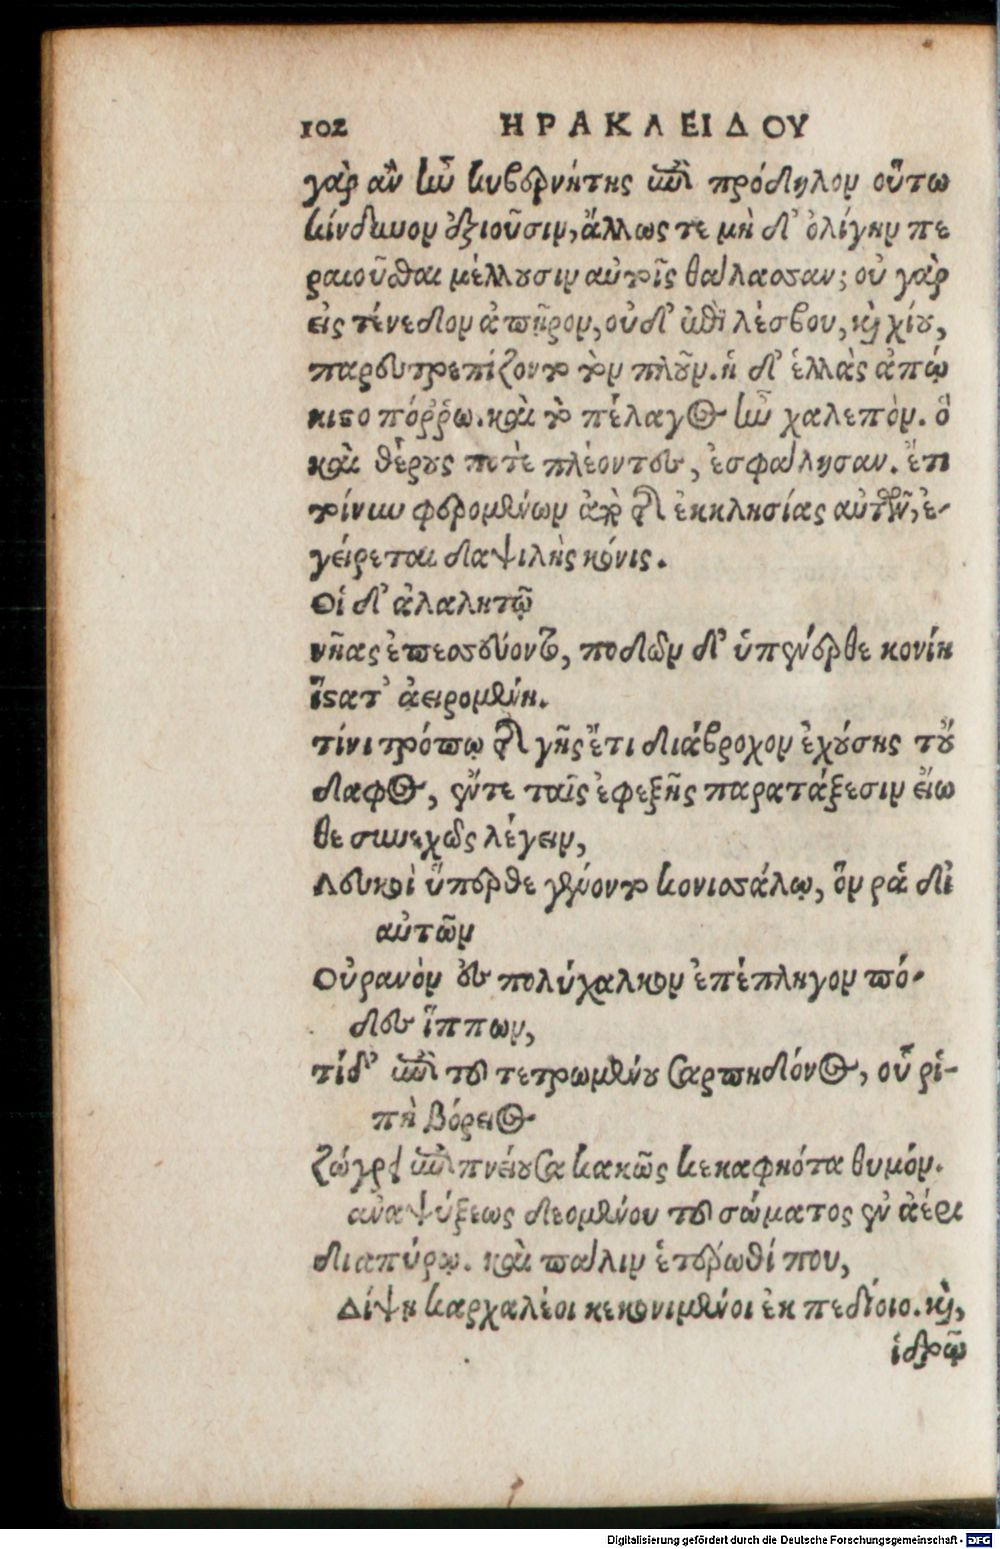 102 ΗΡΑΚΛΕΙΔΟΥ
γὰρ ἂν ἦν κυβερνήτης ἐπὶ πρόδηλον οὕτω
κίνδυνον ἀξιοῦσιν, ἄλλως τε μὴ δ' ὀλίγην πε
ραιοῦσθαι μέλλουσιν αὐτοῖς θάλασσαν; οὐ γὰρ
εἰς τένεδον ἀπῆρον, οὐδ' ἐπὶ λέσβου, καὶ χίου,
παρευτρεπίζοντο τὸν πλοῦν. ἡ δ' ἑλλὰς ἀπῴ
κιστο πόῤῥω. καὶ τὸ πέλαγος ἦν χαλεπὸν. ὃ
καὶ θέρους ποτὲ πλέοντες, ἐσφάλησαν. ἔτι
τοίνυν φερομένων ἀπὸ τῆς ἐκκλησίας αὐτῶν, ἐ-
γείρεται δαψιλὴς κόνις.
Οἱ δ' ἀλαλητῷ
νῆας ἐπεσσεύοντο, ποδῶν δ' ὑπένερθε κονίη
ἵστατ' ἀειρομένη.
τίνι τρόπῳ τῆς γῆς ἔτι διάβροχον ἐχούσης τοὔ
δαφος, ἔντε ταῖς ἐφεξῆς παρατάξεσιν εἴω
θε συνεχῶς λέγειν,
Λευκοὶ ὕπερθε γένοντο κονισσάλῳ, ὅν ῥά δι
αὐτῶν
Οὐρανὸν ἐς πολύχαλκον ἐπέπληγον πό-
δες ἵππων,
τίδ' ἐπὶ τοῦ τετρωμένου Σαρπηδόνος, οὗ ῥι-
πὴ βόρειος
ζώγρει ἐπιπνείουσα κακῶς κεκαφηότα θυμόν.
ἀναψύξεως δεομένου τοῦ σώματος ἐν ἀέρι
διαπύρῳ. καὶ πάλιν ἑτέρωθί που,
Δίψῃ καρχαλέοι κεκονιμένοι ἐκ πεδίοιο. καὶ,
ἱδρῷ
Digitalisierung gefördert durch die Deutsche Forschungsgemeinschaft - DFG